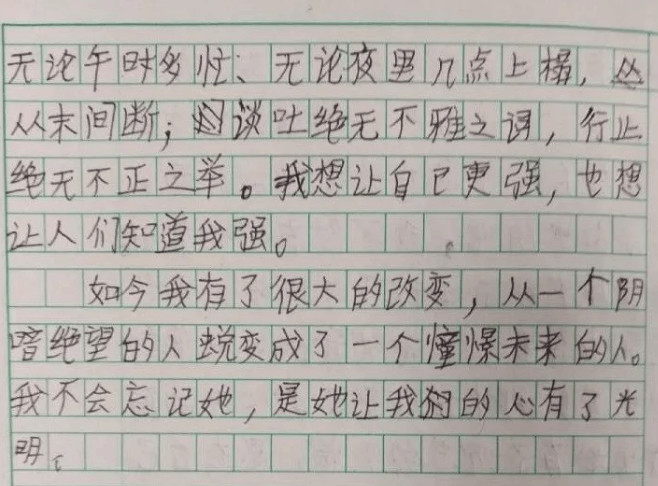 无论午时多忙、无论夜里几点上榻,
从末间断;谈吐绝无不雅之词,行止
绝无不正之举。我想让自已更强,也想
让人们知道我强。
如今我有了很大的改变,从一个阴
暗绝望的人蜕变成了一个憧憬未来的人。
我不会忘记她,是她让我的心有了光
明。